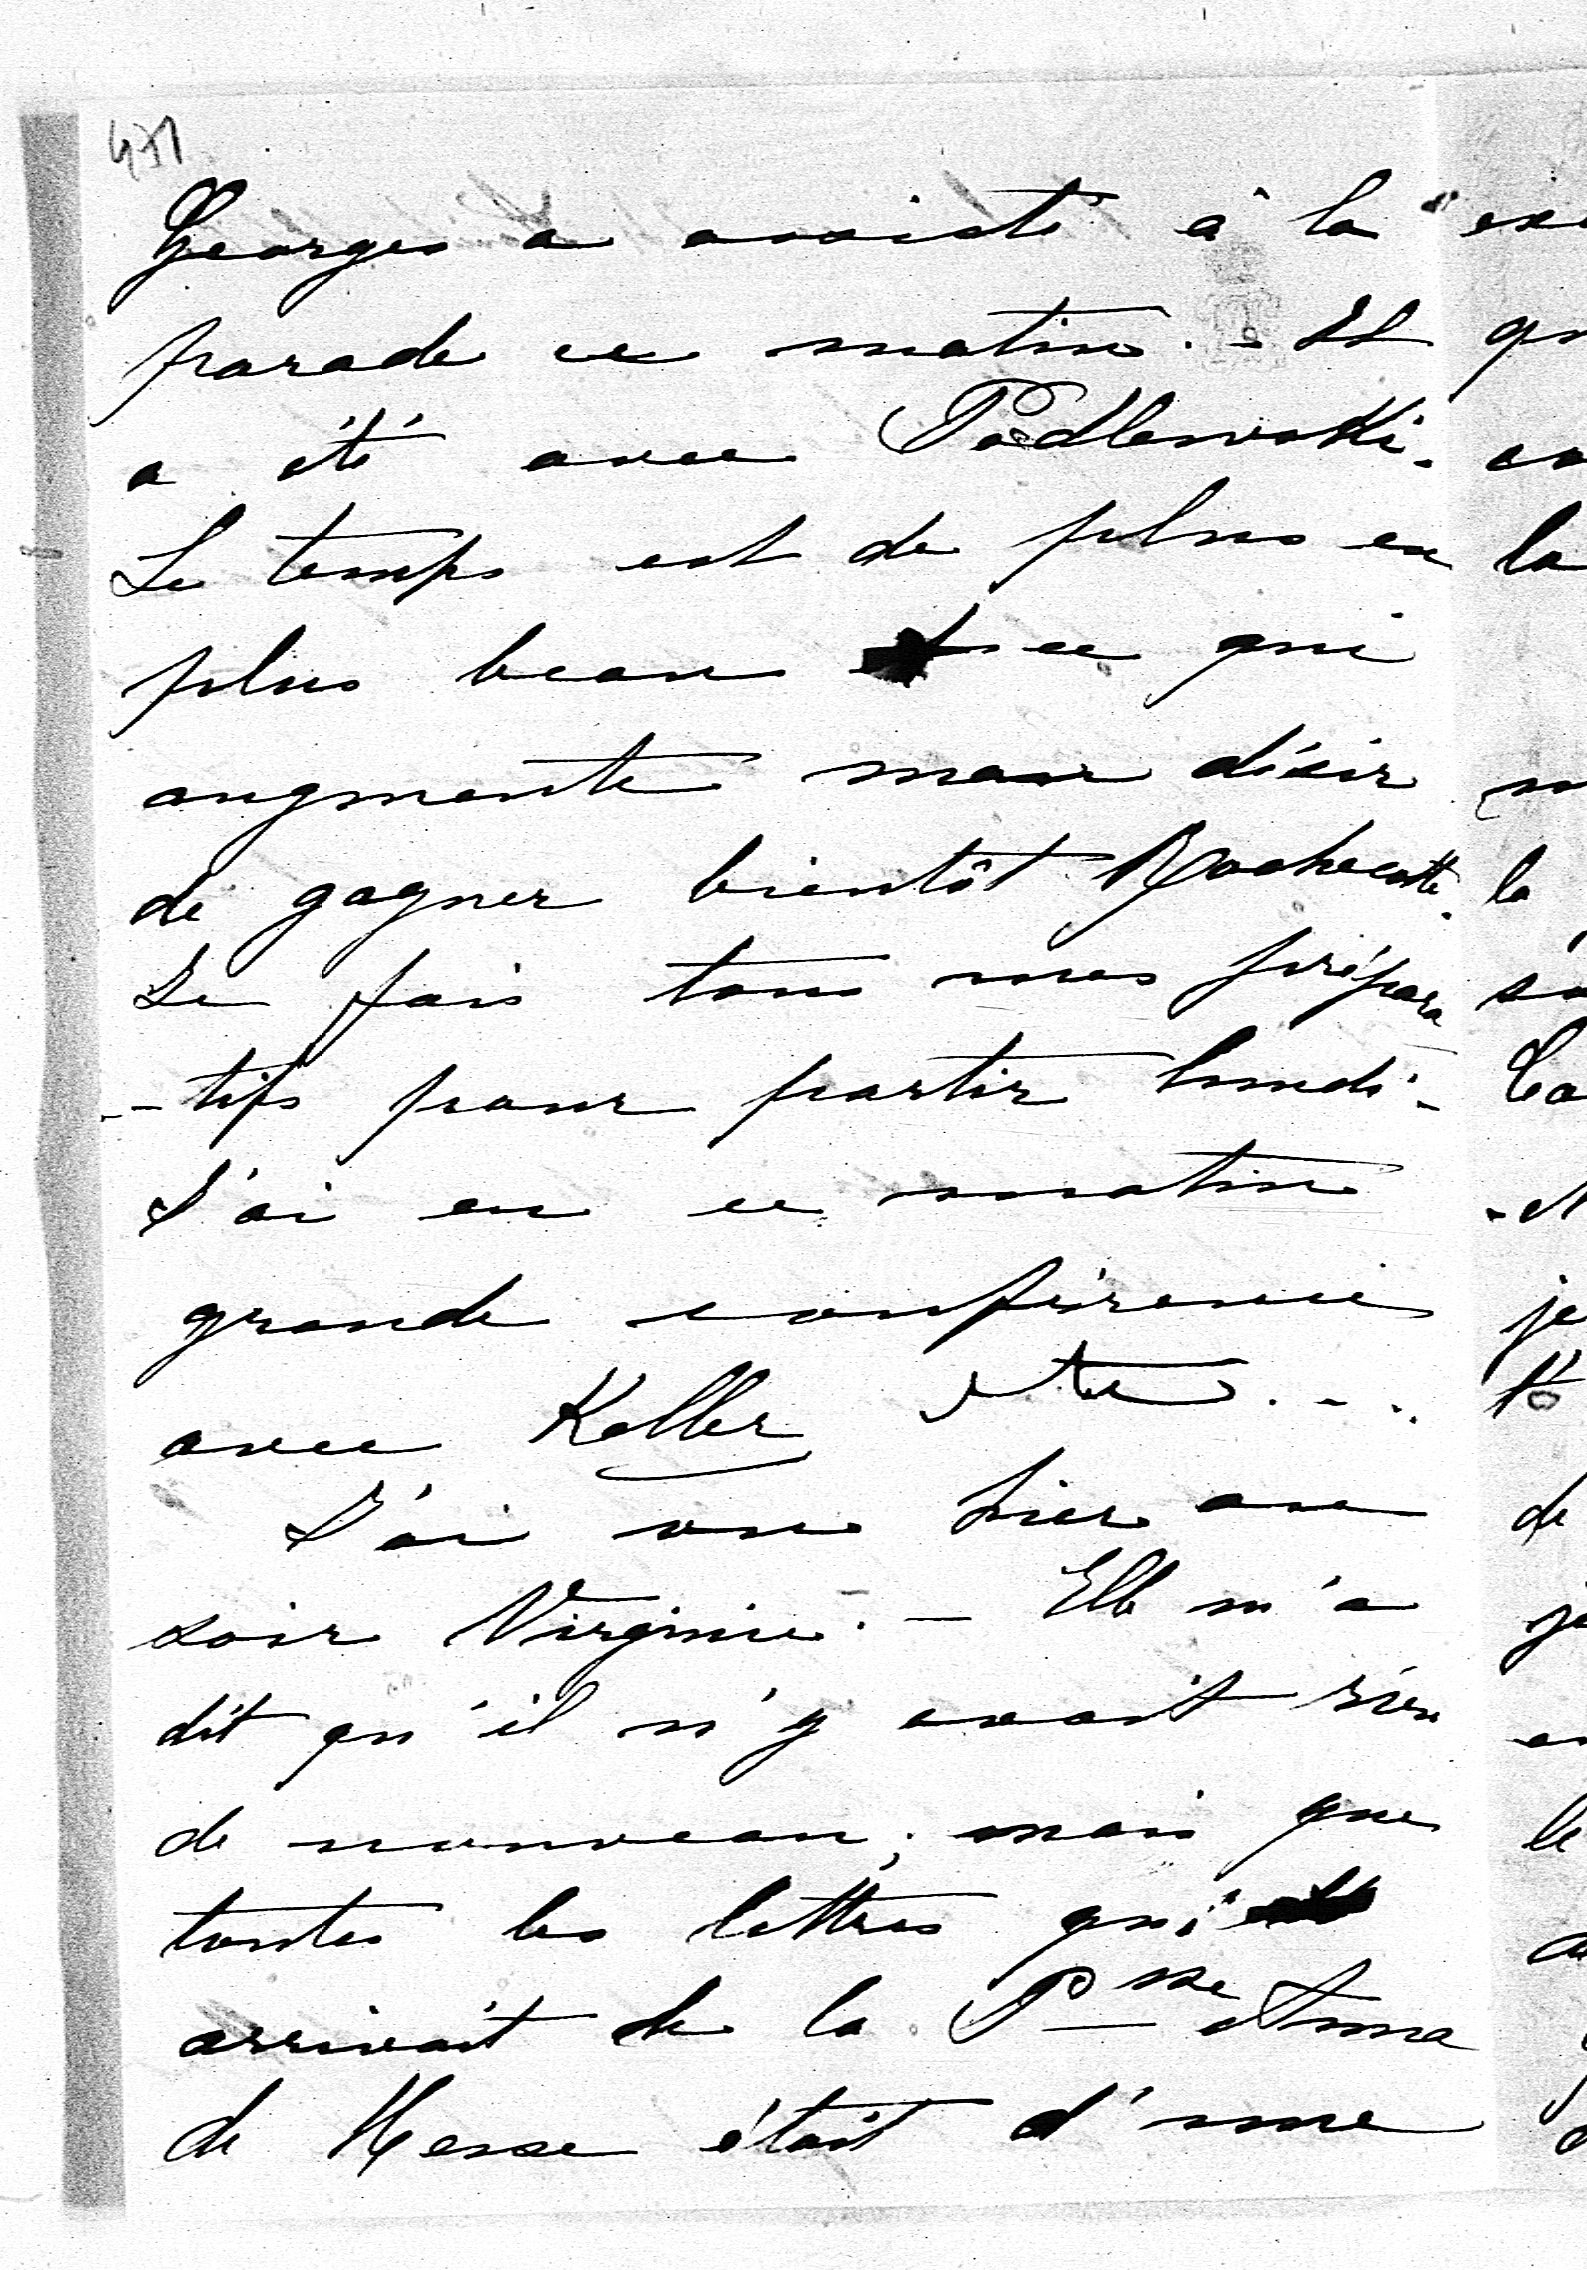 471
Georges a assisté à la
parade ce matin. - Il
a été avec Podlewski.
Le temps est de plus en
plus beau ce qui
augmente mon désir
de gagner bientôt Rochecotte.
Je fais tous mes prépara
-tifs pour partir lundi -
J'ai eu ce matin
grande conférence
avec Keller
J'ai vu hier au
soir Virginie. - Elle m'a
dit qu'il n'y avait rien
de nouveau; mais que
toutes les lettres qui
arrivait de la Psse Anna
de Hesse était d'une